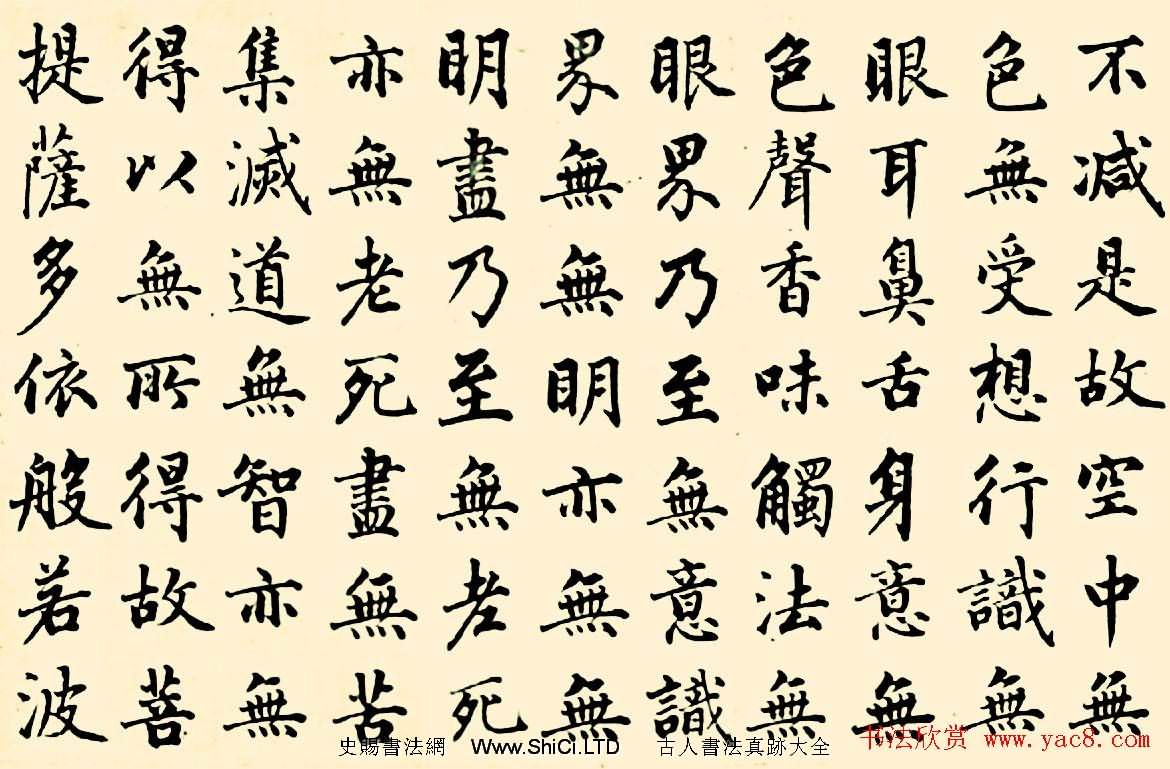 不减是故空中無
色無受想行識無
眼耳鼻舌身意無
色聲香味觸法無
眼界乃至無意識
界無無明亦無無
明盡乃至無老死
亦無老死盡無苦
集滅道無智亦無
得以無所得故菩
提薩多依般若波
史賜書法網 Www.ShiCi.LTD 古人書法真跡大全
书法欣赏 www.yac8.com